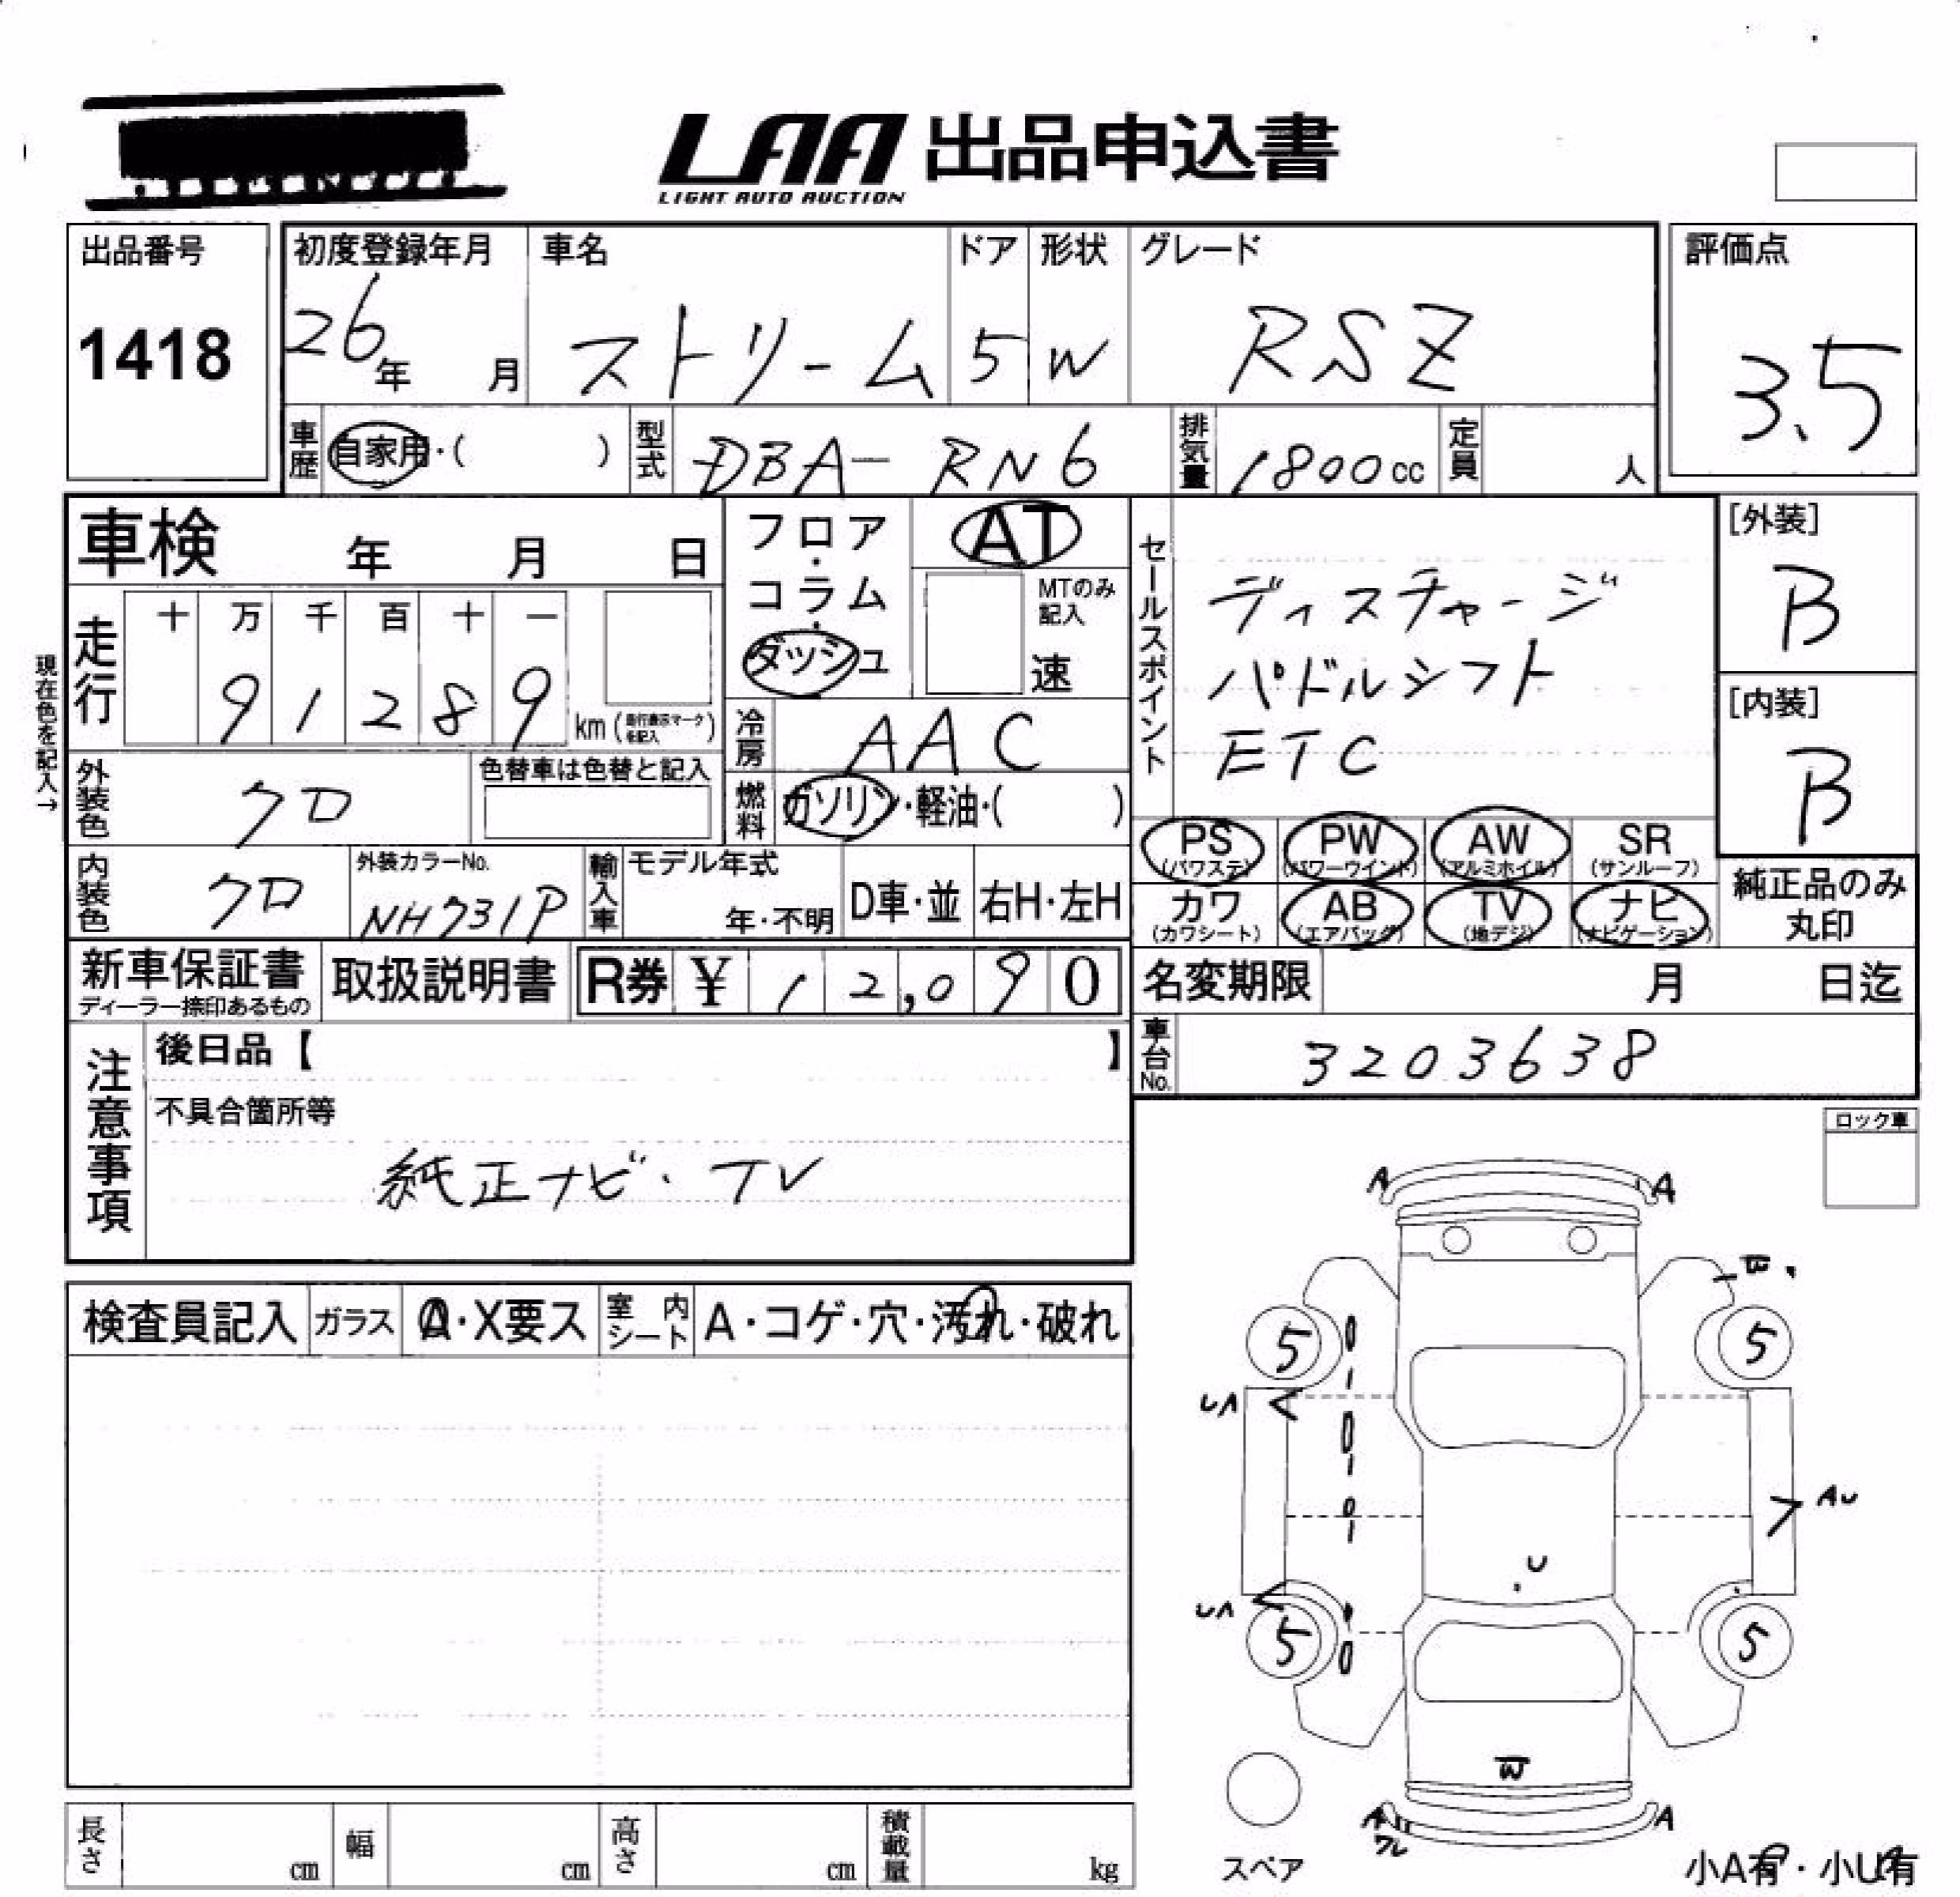 LAA 出品申込書
LIGHT AUTO AUCTION
出品番号 初度登録年月 車名 ドア 形状 グレード 評価点
1418 26年 月 ストリーム 5 W RSZ 3.5
車歴 自家用・( ) 型式 DBA-RN6 排気量 1800cc 定員 人
車検 年 月 日 フロア・コラム・ダッシュ AT
MTのみ記入 速
現在色を記入→
走行 十 万 千 百 十 一
9 1 2 8 9 km (走行表示マークを記入)
冷房 AAC
外装色 クロ 色替車は色替と記入
燃料 ガソリン・軽油・( )
内装色 クロ 外装カラーNo. NH731P 輸入車 モデル年式 年・不明 D車・並 右H・左H
セールスポイント
ディスチャージ
パドルシフト
ETC
[外装] B
[内装] B
PS (パワステ) PW (パワーウインド) AW (アルミホイル) SR (サンルーフ)
カワ (カワシート) AB (エアバッグ) TV (地デジ) ナビ (ナビゲーション)
純正品のみ丸印
新車保証書 ディーラー捺印あるもの 取扱説明書 R券 ¥ 12,090
名変期限 月 日迄
車台No. 3203638
注意事項
後日品【 】
不具合箇所等
純正ナビ・TV
ロック車
検査員記入 ガラス A・X要ス 室内シート A・コゲ・穴・汚れ・破れ
A A
W
5 5
UA
AU
U
UA
5 5
W
A A
ワレ
スペア
小A有・小U有
長さ cm 幅 cm 高さ cm 積載量 kg